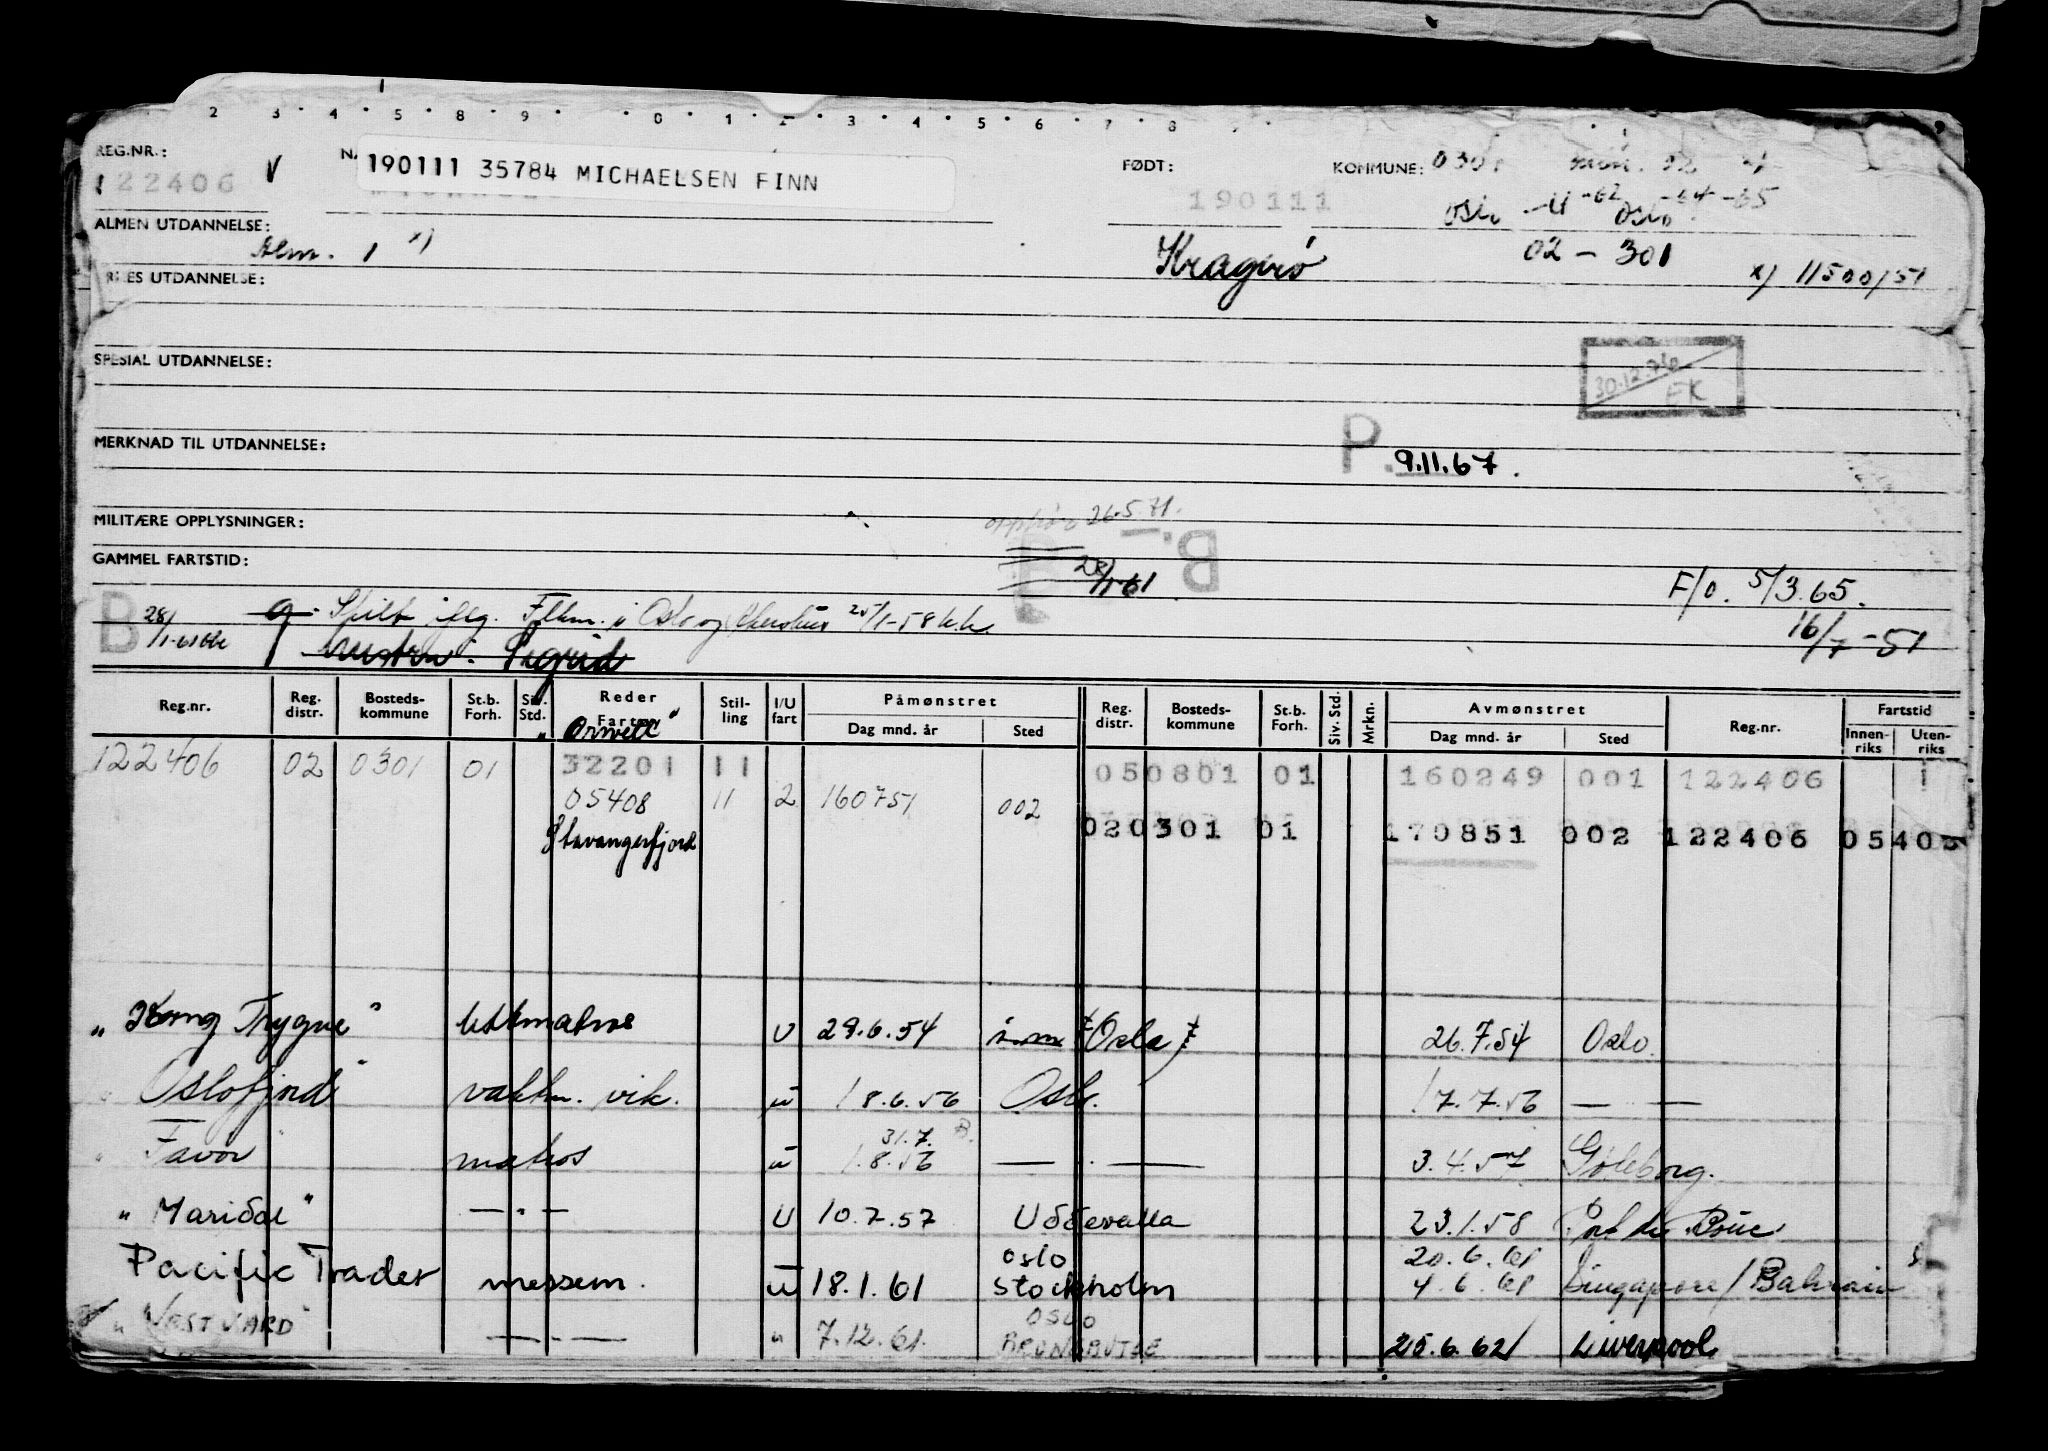 2 3 4 5 8 9 0 1 2 3 4 5 6 7 8
REG.NR.: 190111 35784 MICHAELSEN FINN FØDT: KOMMUNE: 0301
122406 V 190111 Oslo Oslo
ALMEN UTDANNELSE:
Alm. 1 x) Kragerø 02 - 301 x) 11500/51
UTDANNELSE:
30.12.70
SPESIAL UTDANNELSE: EK
P. 9.11.67.
MERKNAD TIL UTDANNELSE:
26.5.71.
MILITÆRE OPPLYSNINGER:
B.-
GAMMEL FARTSTID:
28/1-61 F/o. 5/3.65.
B 28/1-61 Oslo og 25/1-58 16/7-51
Sigrid
Reg.nr. Reg. distr. Bosteds-kommune St.b. Forh. Siv. Std. Reder Stil-ling I/U fart Påmønstret Dag mnd. år Sted Reg. distr. Bosteds-kommune St.b. Forh. Siv. Std. Mrkn. Avmønstret Dag mnd. år Sted Reg.nr. Fartstid Innen-riks Uten-riks
"Orwell"
122406 02 0301 01 32201 11 050801 01 160249 001 122406 1
05408 11 2 160751 002
Stavangerfjord 020301 01 170851 002 122406 0540
"Kong Trygve" U 29.6.54 (Oslo) 26.7.54 Oslo
"Oslofjord" vaktm. vik. u 18.6.56 Oslo. 17.7.56 — —
31.7. B.
"Favor" matros u 1.8.56 — . — 3.4.57 Göteborg.
"Maridal" — " — U 10.7.57 Uddevalla 23.1.58 Port de Bouc
Oslo 20.6.61
Pacific Trader messem. u 18.1.61 Stockholm 4.6.61 Singapore / Bahrain
Oslo
"VESTVARD" — " — " 7.12.61. 25.6.62 Liverpool